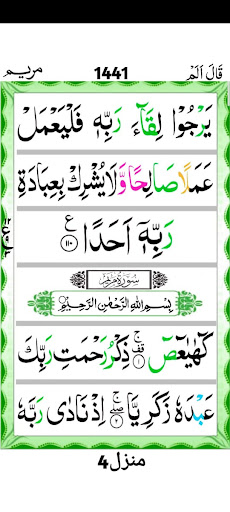 مريم 1441 قَالَ اَلَمْ
يَرْجُوْا لِقَآءَ رَبِّهٖ فَلْيَعْمَلْ
عَمَلًا صَالِحًا وَّلَا يُشْرِكْ بِعِبَادَةِ
رَبِّهٖۤ اَحَدًا ۝۱۱۰ ع
سُوْرَةُ مَرْيَمَ
بِسْمِ اللهِ الرَّحْمٰنِ الرَّحِيْمِ
كٓهٰيٰعٓصٓ ۝۱ ذِكْرُ رَحْمَتِ رَبِّكَ
عَبْدَهٗ زَكَرِيَّا ۝۲ اِذْ نَادٰى رَبَّهٗ
منزل 4